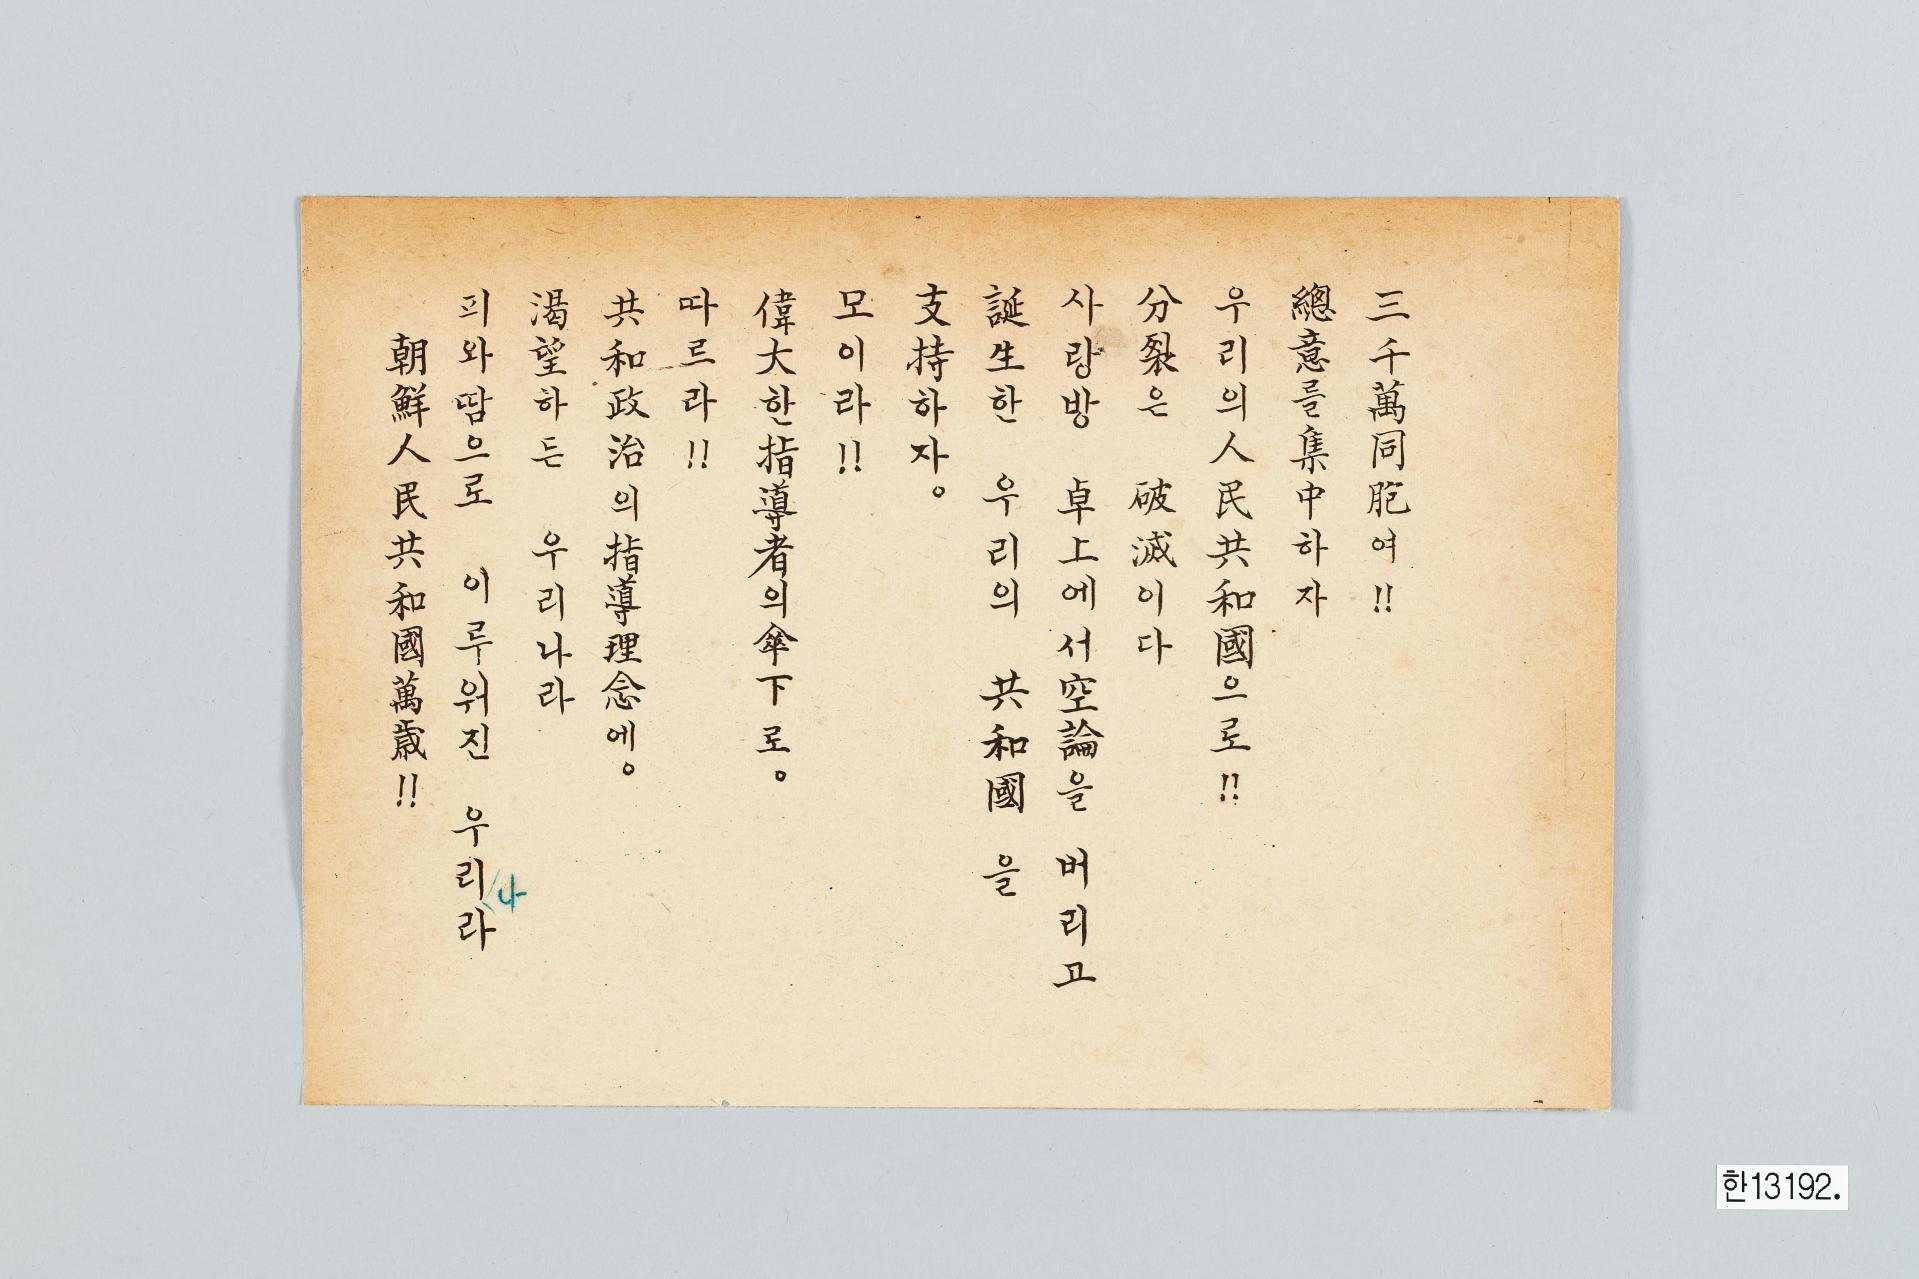 三千萬同胞여!!
總意를集中하자
우리의人民共和國으로!!
分裂은 破滅이다
사랑방 卓上에서空論을 버리고
誕生한 우리의 共和國을
支持하자。
모이라!!
偉大한指導者의傘下로。
따르라!!
共和政治의指導理念에。
渴望하든 우리나라
피와땀으로 이루워진 우리라
나
朝鮮人民共和國萬歲!!
한13192.